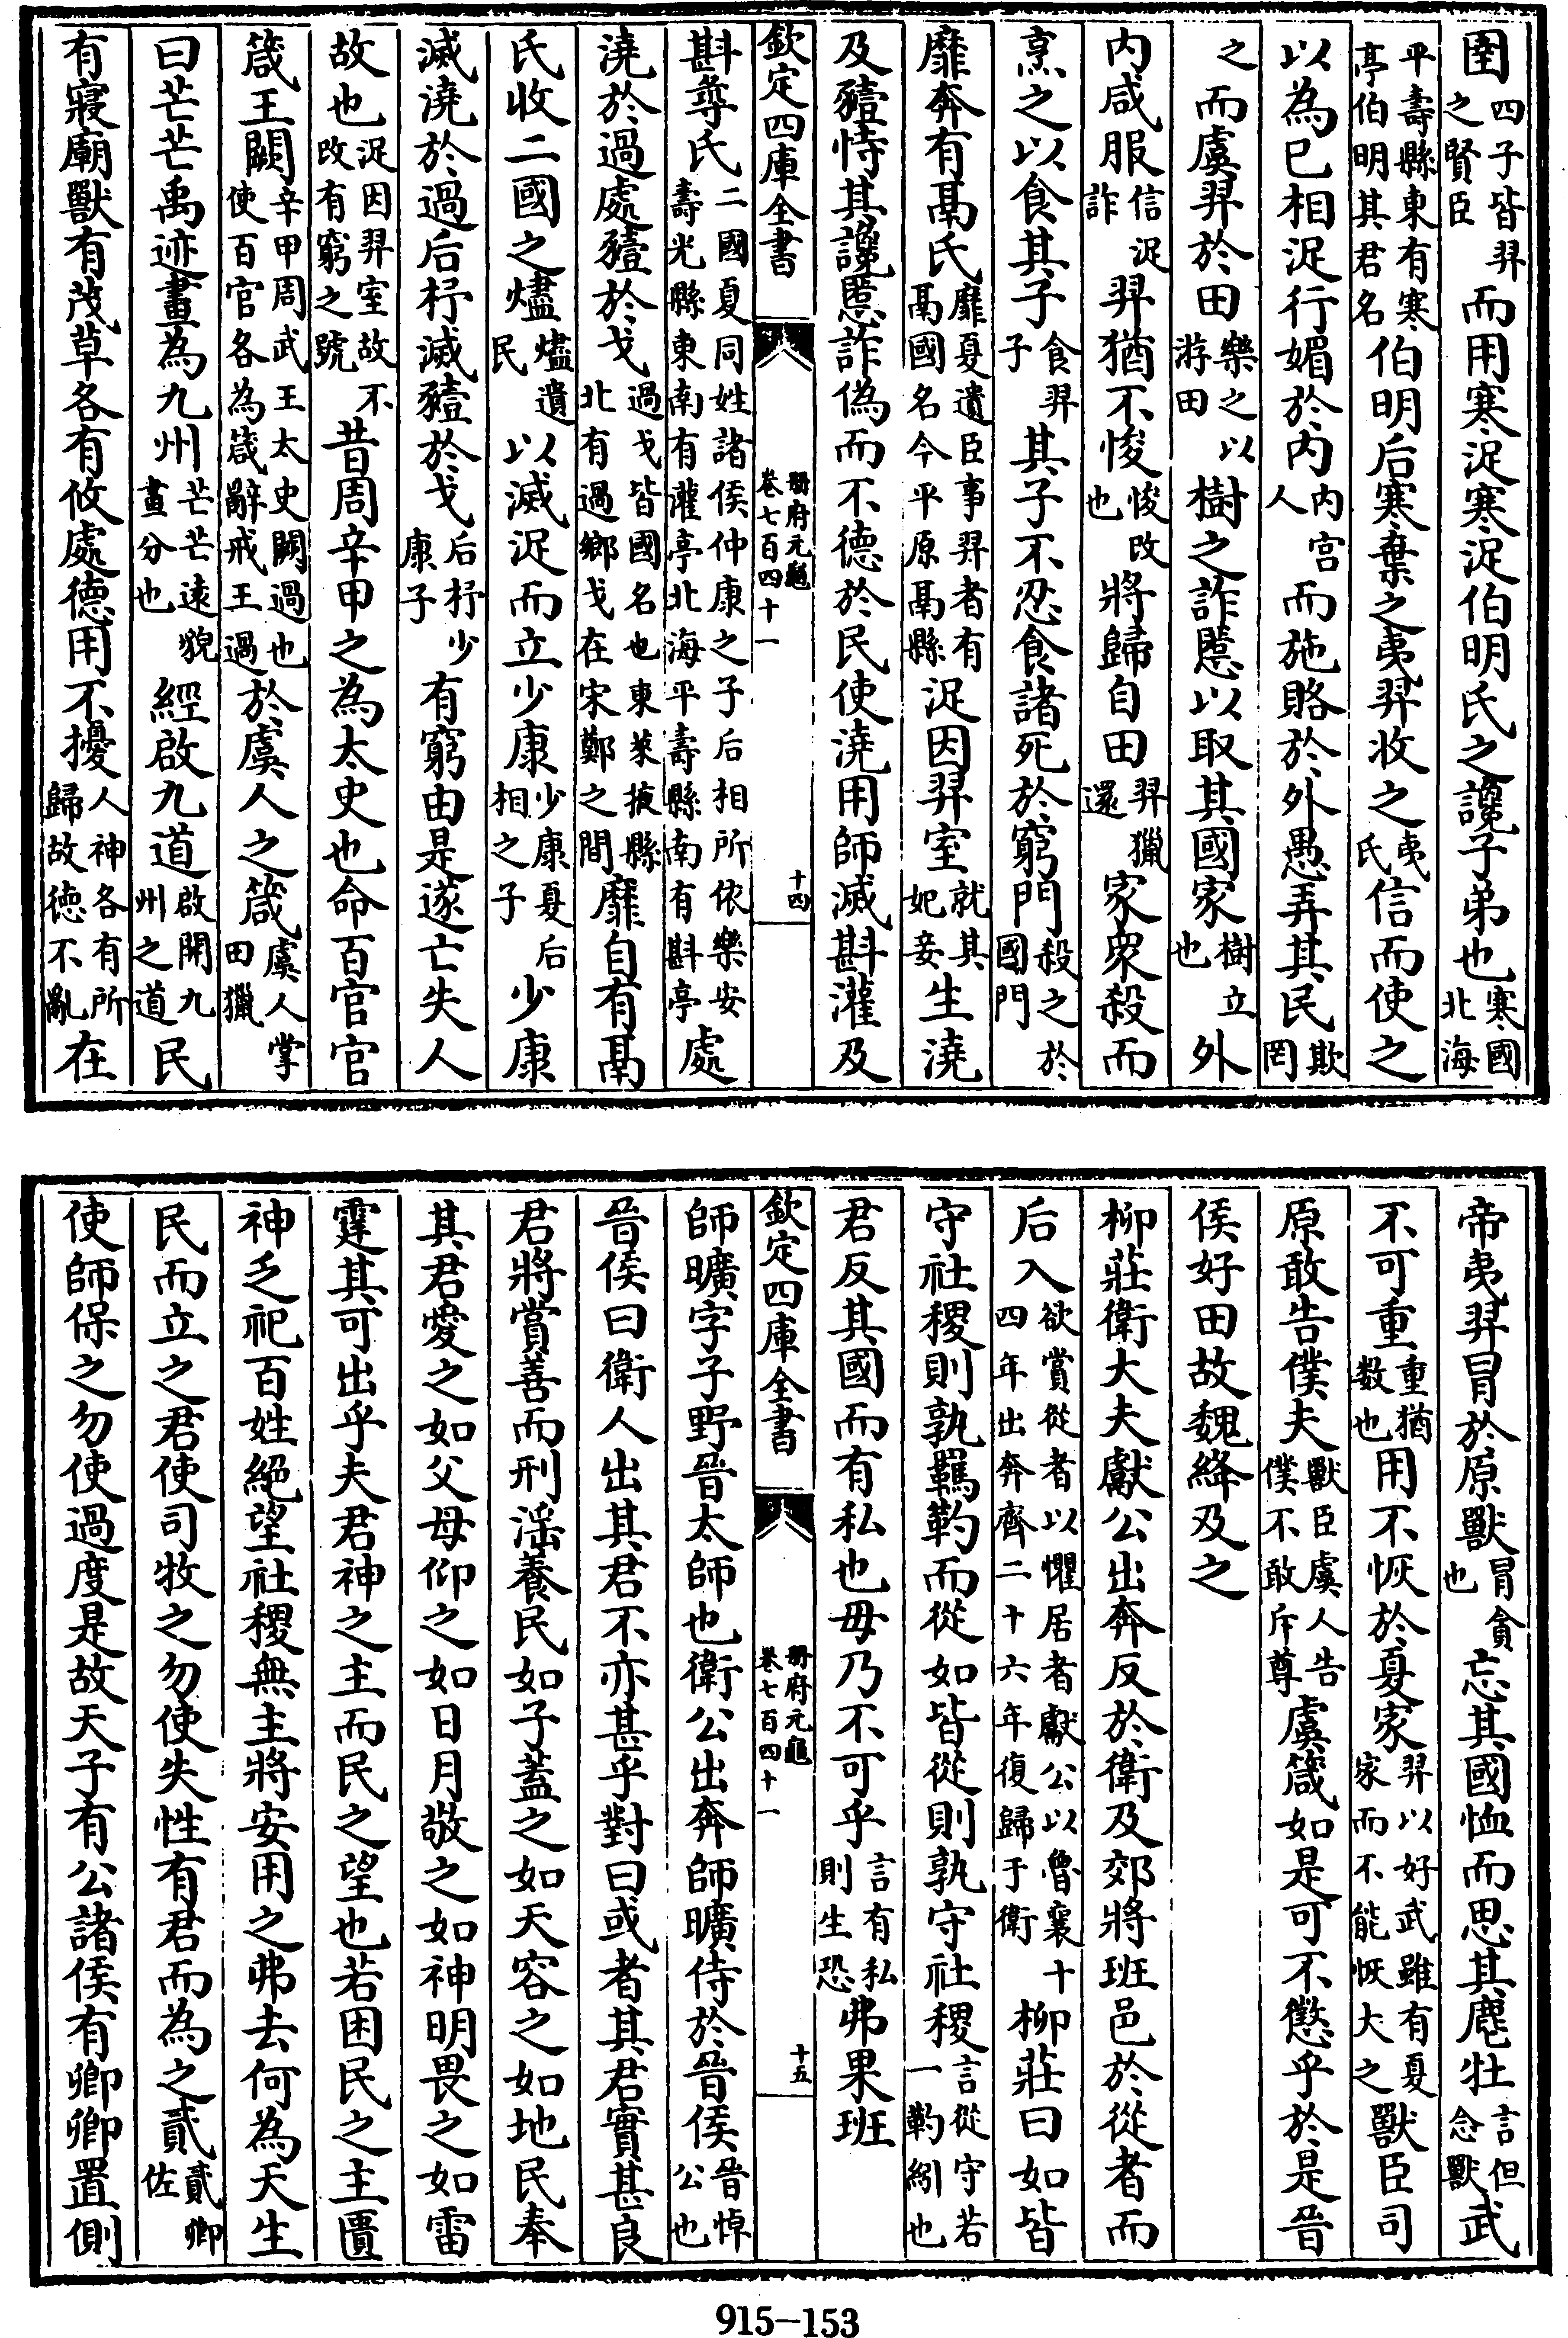 圉四子皆羿之賢臣而用寒浞寒浞伯明氏之讒子弟也寒國北海
平壽縣東有寒亭伯明其君名伯明后寒棄之夷羿收之夷氏信而使之
以為已相浞行媚於内内宫人而施賂於外愚弄其民欺罔
之而虞羿於田樂之以游田樹之詐慝以取其國家樹立也外
内咸服信浞詐羿猶不悛悛改也將歸自田羿獵還家衆殺而
烹之以食其子食羿子其子不忍食諸死於窮門殺之於國門
靡奔有鬲氏靡夏遺臣事羿者有鬲國名今平原鬲縣浞因羿室就其妃妾生澆
及豷恃其讒慝詐偽而不德於民使澆用師滅斟灌及
欽定四庫全書 冊府元龜卷七百四十一 十四
斟尋氏二國夏同姓諸侯仲康之子后相所依樂安壽光縣東南有灌亭北海平壽縣南有斟亭處
澆於過處豷於戈過戈皆國名也東萊掖縣北有過鄉戈在宋鄭之間靡自有鬲
氏收二國之燼燼遺民以滅浞而立少康少康夏后相之子少康
滅澆於過后杼滅豷於戈后杼少康子有窮由是遂亡失人
故也浞因羿室故不改有窮之號昔周辛甲之為太史也命百官官
箴王闕辛甲周武王太史闕過也使百官各為箴辭戒王過於虞人之箴虞人掌田獵
曰芒芒禹迹畫為九州芒芒遠貌畫分也經啟九道啟開九州之道民
有寢廟獸有茂草各有攸處德用不擾人神各有所歸故徳不亂在
帝夷羿冒於原獸冒貪也忘其國恤而思其麀牡言但念獸武
不可重重猶数也用不恢於夏家羿以好武雖有夏家而不能恢大之獸臣司
原敢告僕夫獸臣虞人告僕不敢斥尊虞箴如是可不懲乎於是晉
侯好田故魏絳及之
柳莊衛大夫獻公出奔反於衛及郊將班邑於從者而
后入欲賞從者以懼居者獻公以魯襄十四年出奔齊二十六年復歸于衛柳莊曰如皆
守社稷則孰羈靮而從如皆從則孰守社稷言從守若一靮紖也
君反其國而有私也毋乃不可乎言有私則生恐弗果班
欽定四庫全書 冊府元龜卷七百四十一 十五
師曠字子野晉太師也衛公出奔師曠侍於晉侯晉悼公也
晉侯曰衛人出其君不亦甚乎對曰或者其君實甚良
君將賞善而刑淫養民如子蓋之如天容之如地民奉
其君愛之如父母仰之如日月敬之如神明畏之如雷
霆其可出乎夫君神之主而民之望也若困民之主匱
神乏祀百姓絕望社稷無主將安用之弗去何為天生
民而立之君使司牧之勿使失性有君而為之貳貳卿佐
使師保之勿使過度是故天子有公諸侯有卿卿置側
915-153